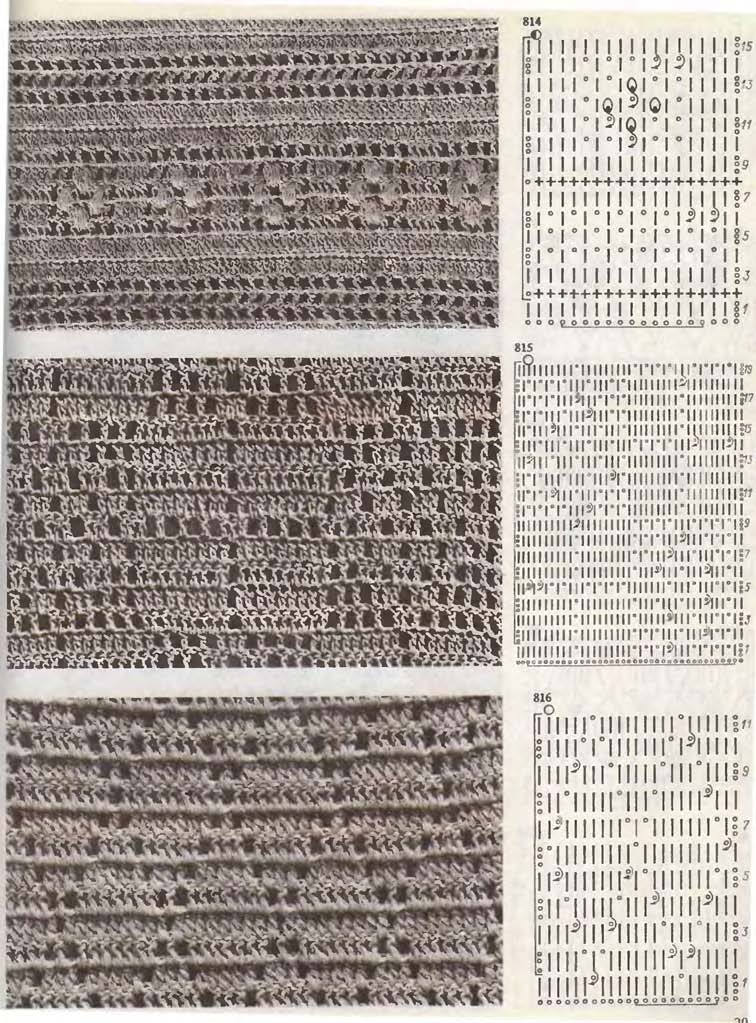 814
15
13
11
9
7
5
3
1
815
19
17
15
13
11
9
7
5
3
1
816
11
9
7
5
3
1